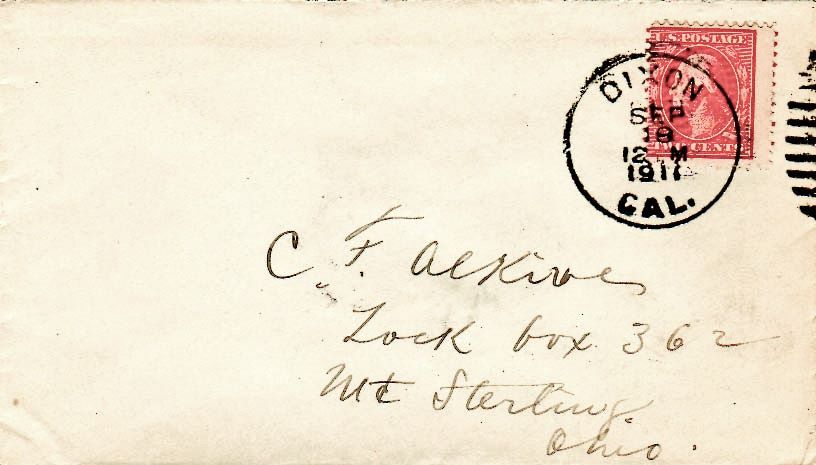 U.S. POSTAGE
TWO CENTS
DIXON
SEP
18
12 M
1911
CAL.
C. F. Alkire
Lock box 362
Mt Sterling
Ohio.